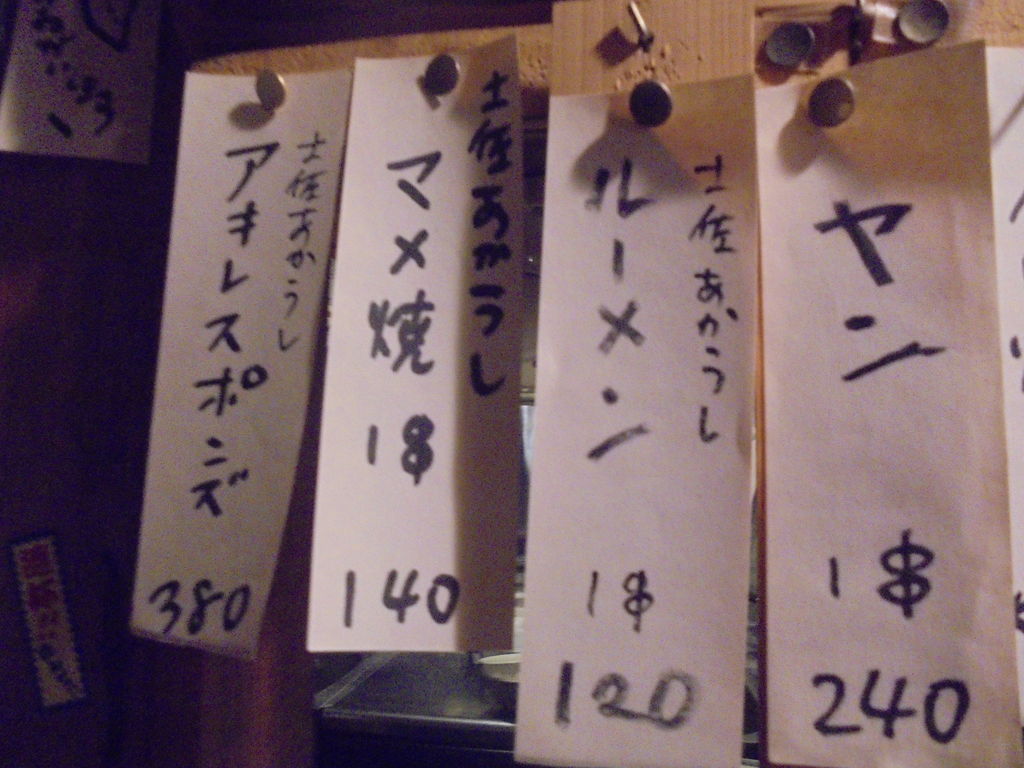 土佐あかうし
アキレスポンズ
380
土佐あかうし
マメ焼
1$
140
土佐あかうし
ルーメン
1$
120
ヤン
1$
240